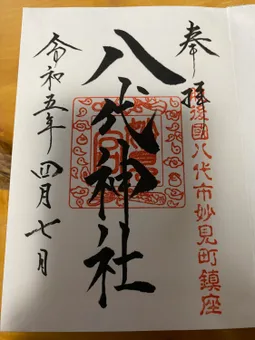 奉拝
肥後國八代市妙見町鎮座
八代神社
令和五年四月七日